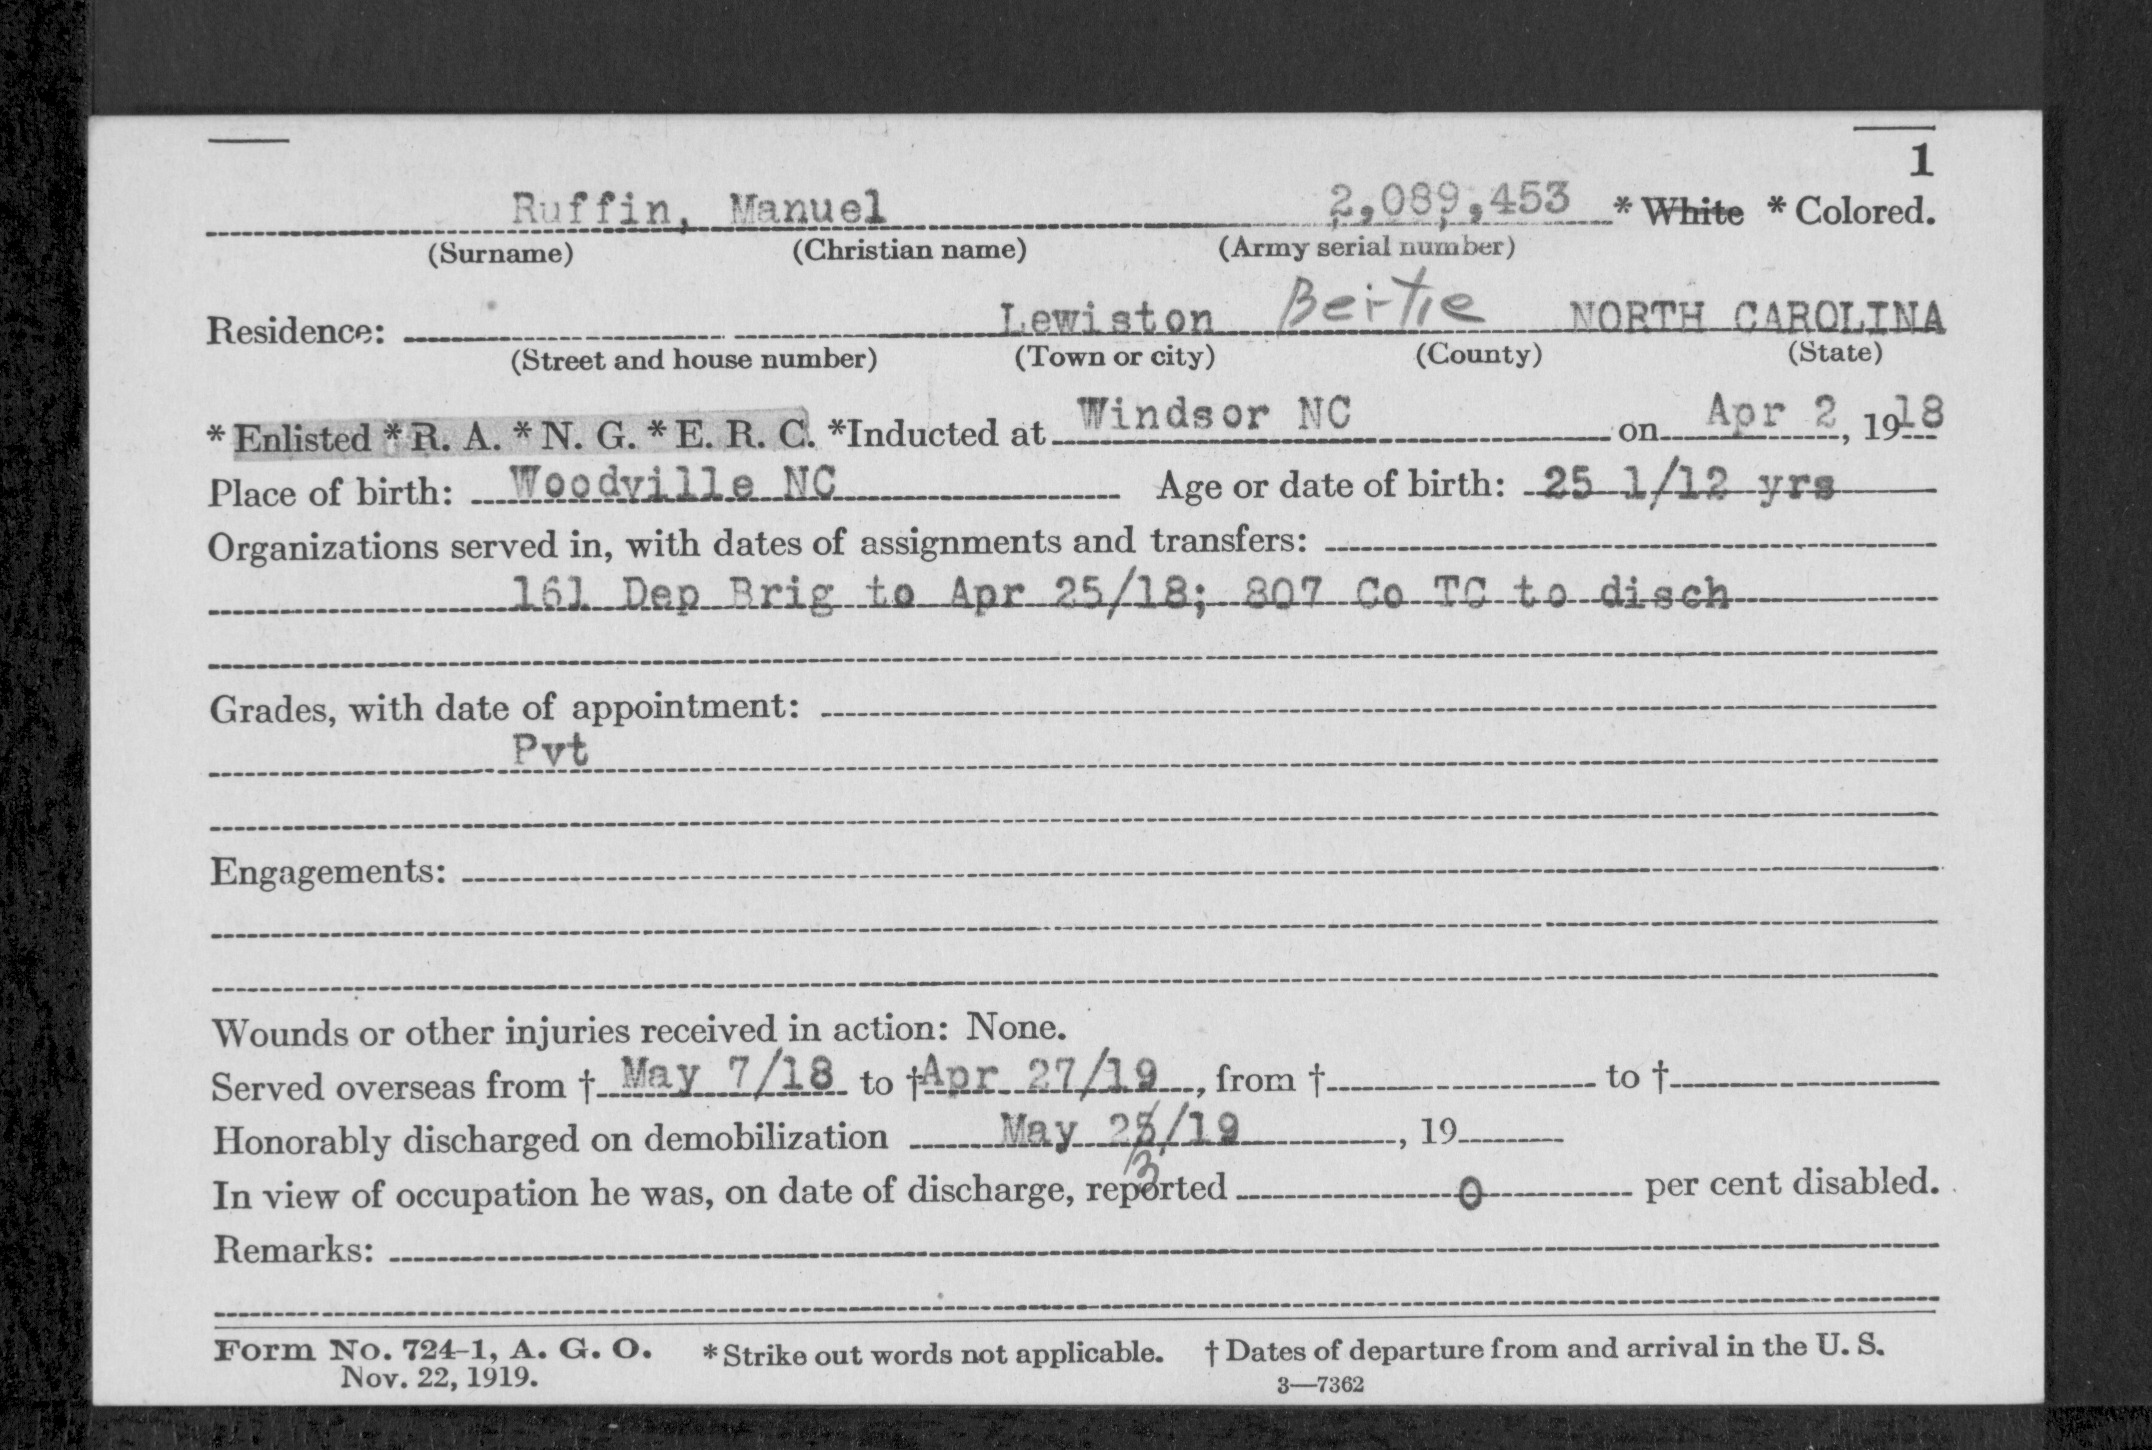 1
Ruffin, Manuel 2,089,453 * White * Colored.
(Surname) (Christian name) (Army serial number)
Residence: Lewiston Bertie NORTH CAROLINA
(Street and house number) (Town or city) (County) (State)
* Enlisted * R. A. * N. G. * E. R. C. *Inducted at Windsor NC on Apr 2, 1918
Place of birth: Woodville NC Age or date of birth: 25 1/12 yrs
Organizations served in, with dates of assignments and transfers:
161 Dep Brig to Apr 25/18; 807 Co TC to disch
Grades, with date of appointment:
Pvt
Engagements:
Wounds or other injuries received in action: None.
Served overseas from † May 7/18 to † Apr 27/19, from † to †
Honorably discharged on demobilization May 25/19, 19
3
In view of occupation he was, on date of discharge, reported 0 per cent disabled.
Remarks:
Form No. 724-1, A. G. O. * Strike out words not applicable. † Dates of departure from and arrival in the U. S.
Nov. 22, 1919. 3—7362